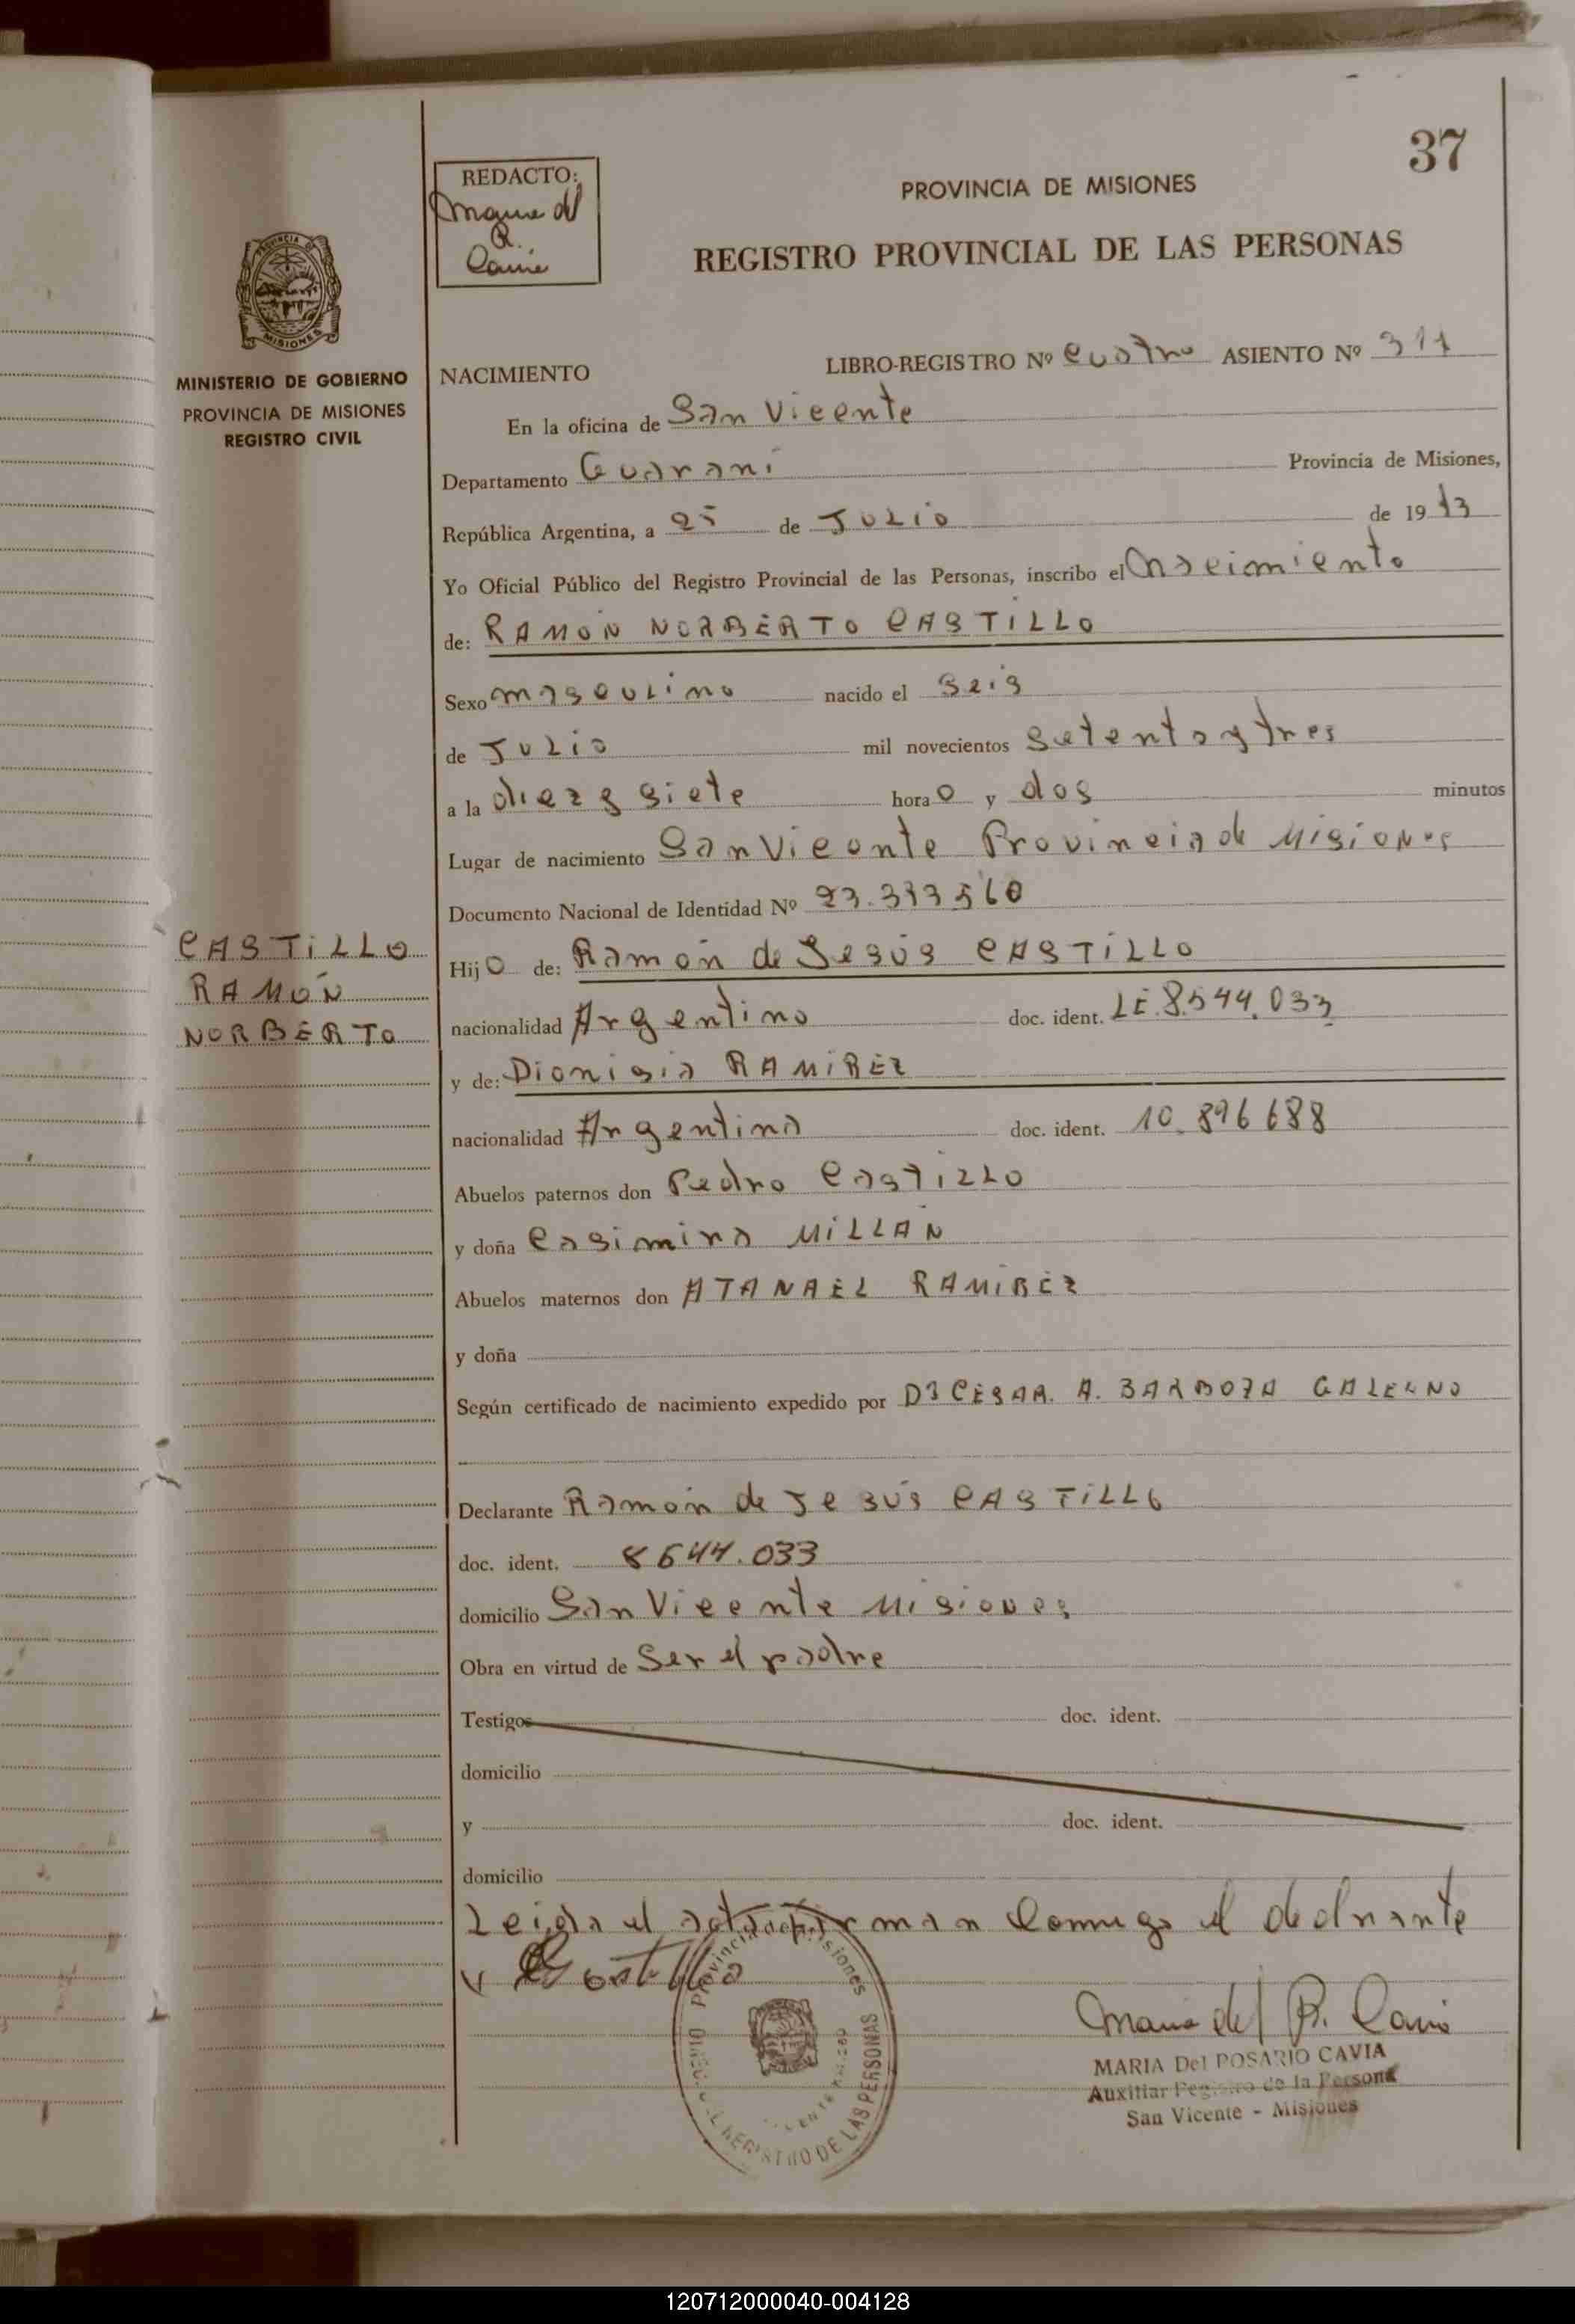 37
REDACTO:
PROVINCIA DE MISIONES
REGISTRO PROVINCIAL DE LAS PERSONAS
PROVINCIA DE
MISIONES
MINISTERIO DE GOBIERNO
PROVINCIA DE MISIONES
REGISTRO CIVIL
NACIMIENTO LIBRO-REGISTRO Nº Cuatro ASIENTO Nº 311
En la oficina de San Vicente
Departamento Guaraní Provincia de Misiones,
República Argentina, a 25 de Julio de 1973
Yo Oficial Público del Registro Provincial de las Personas, inscribo el nacimiento
de: RAMÓN NORBERTO CASTILLO
Sexo masculino nacido el seis
de Julio mil novecientos setenta y tres
a la diez y siete hora o y dos minutos
Lugar de nacimiento San Vicente Provincia de Misiones
Documento Nacional de Identidad Nº
CASTILLO
RAMÓN
NORBERTO
Hijo de: Ramón de Jesús CASTILLO
nacionalidad Argentino doc. ident. LE. 8.544.033
y de: Dionisia RAMIREZ
nacionalidad Argentina doc. ident. 10.896688
Abuelos paternos don Pedro Castillo
y doña Casimira MILLAN
Abuelos maternos don ATANAEL RAMIREZ
y doña
Según certificado de nacimiento expedido por CESAR. A. BARBOZA GALEANO
Declarante Ramón de Jesús CASTILLO
doc. ident. 8544.033
domicilio San Vicente Misiones
Obra en virtud de Ser el padre
Testigos doc. ident.
domicilio
y doc. ident.
domicilio
Leida el acta firman Conmigo el declarante
Castillo
Provincia de Misiones
REGISTRO DE LAS PERSONAS
Maria del R. Cavia
MARIA Del ROSARIO CAVIA
Auxiliar Registro de la Persona
San Vicente - Misiones
120712000040-004128